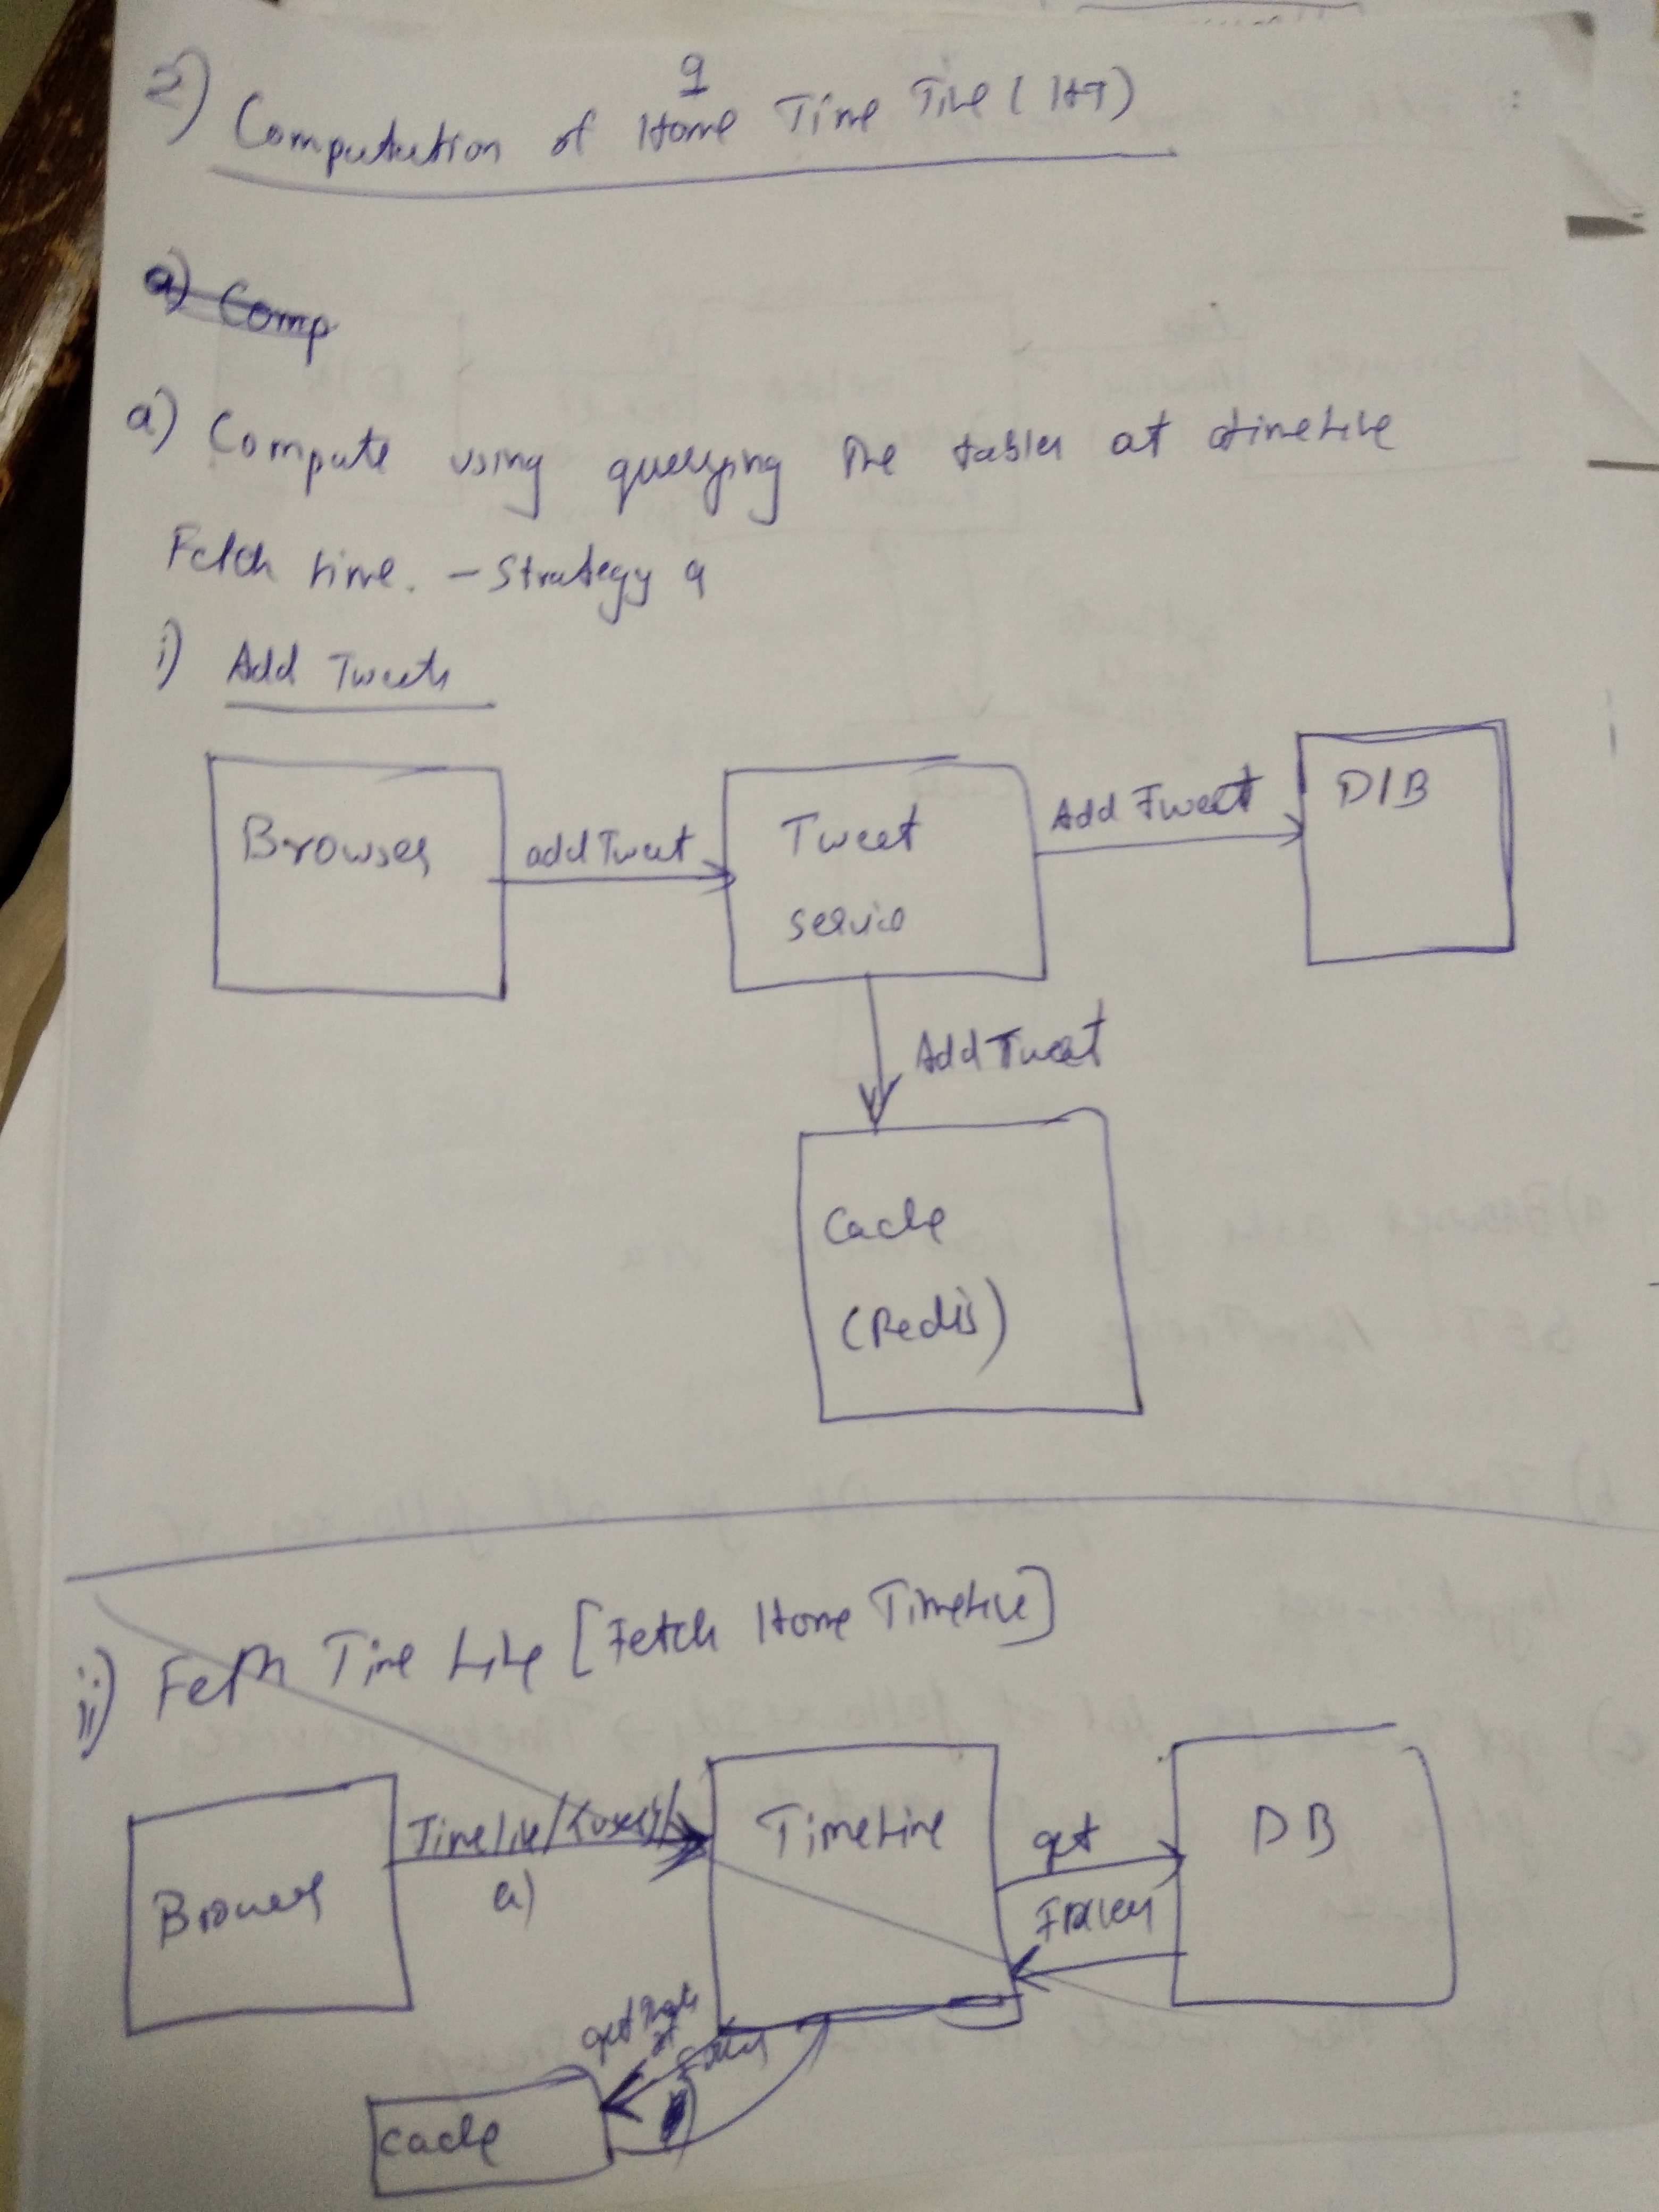 9
2) Computation of Home Time Line (HT)
a) Comp
a) Compute using querying the tables at timeline
Fetch time. - Strategy a
i) Add Tweets
Browser
addTweet
Tweet
service
Add Tweet
D/B
Add Tweet
Cache
(Redis)
ii) Fetch Time Line [Fetch Home Timeline]
Browser
Timeline/{user}/
a)
Timeline
get
DB
get
Cache